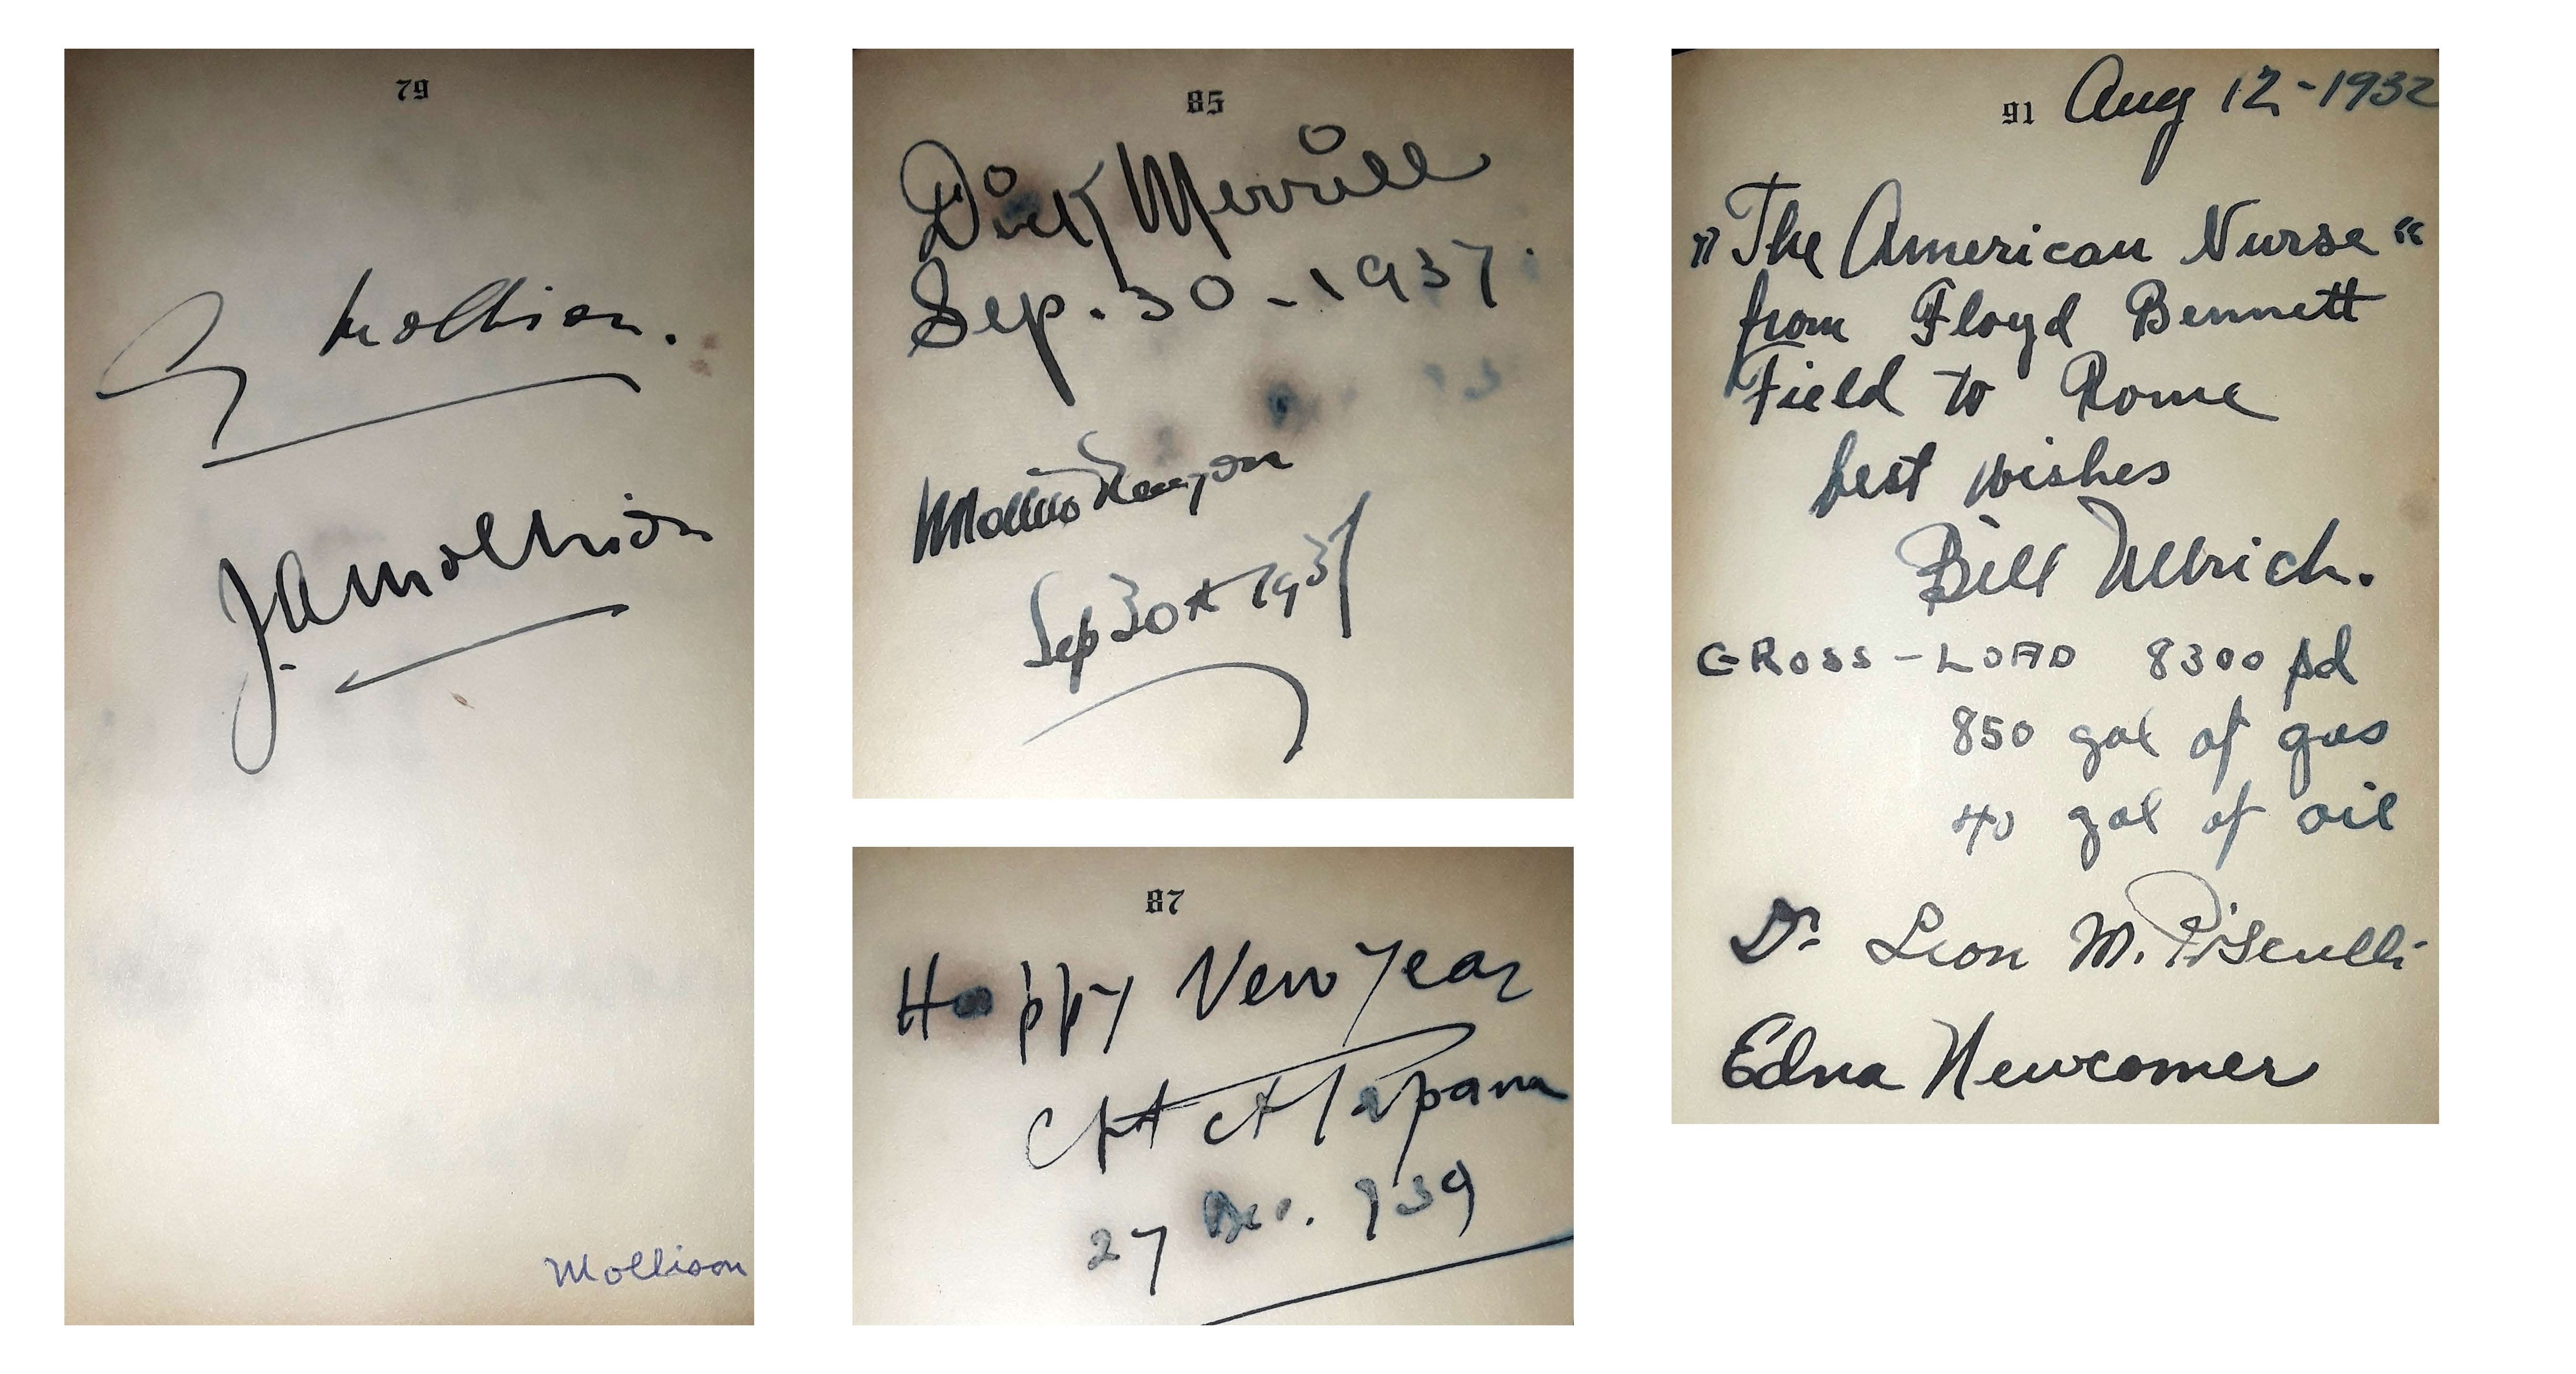 79
Mollison.
J.A. Mollison
Mollison
85
Dick Merrill
Sep. 30 - 1937.
Sep 30th 1937
87
Happy New Year
27 Dec. 939
91 Aug 12 - 1932
"The American Nurse"
from Floyd Bennett
Field to Rome
best wishes
Bill Ulbrich.
GROSS - LOAD 8300 pd
850 gal of gas
40 gal of oil
Dr Leon M. Pisculli
Edna Newcomer